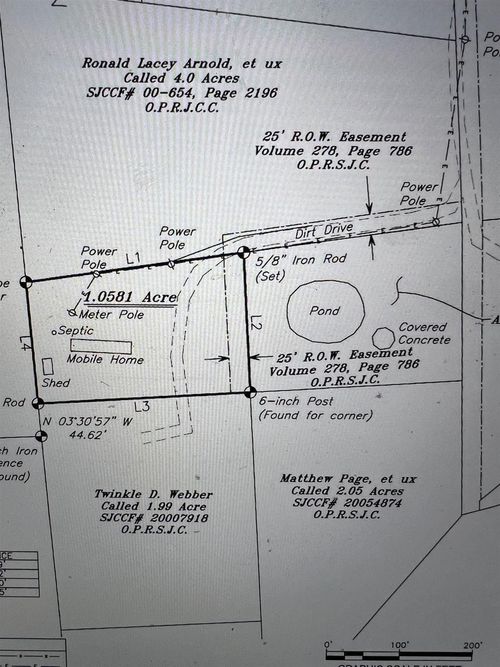 Ronald Lacey Arnold, et ux
Called 4.0 Acres
SJCCF# 00-654, Page 2196
O.P.R.J.C.C.
25' R.O.W. Easement
Volume 278, Page 786
O.P.R.S.J.C.
Power
Pole
Dirt Drive
Power
Pole
L1
Power
Pole
5/8" Iron Rod
(Set)
1.0581 Acre
Meter Pole
Septic
Mobile Home
Shed
L4
L2
Pond
Covered
Concrete
25' R.O.W. Easement
Volume 278, Page 786
O.P.R.S.J.C.
L3
Rod
N 03°30'57" W
44.62'
6-inch Post
(Found for corner)
Iron
Twinkle D. Webber
Called 1.99 Acre
SJCCF# 20007918
O.P.R.S.J.C.
Matthew Page, et ux
Called 2.05 Acres
SJCCF# 20054874
O.P.R.S.J.C.
0'
100'
200'